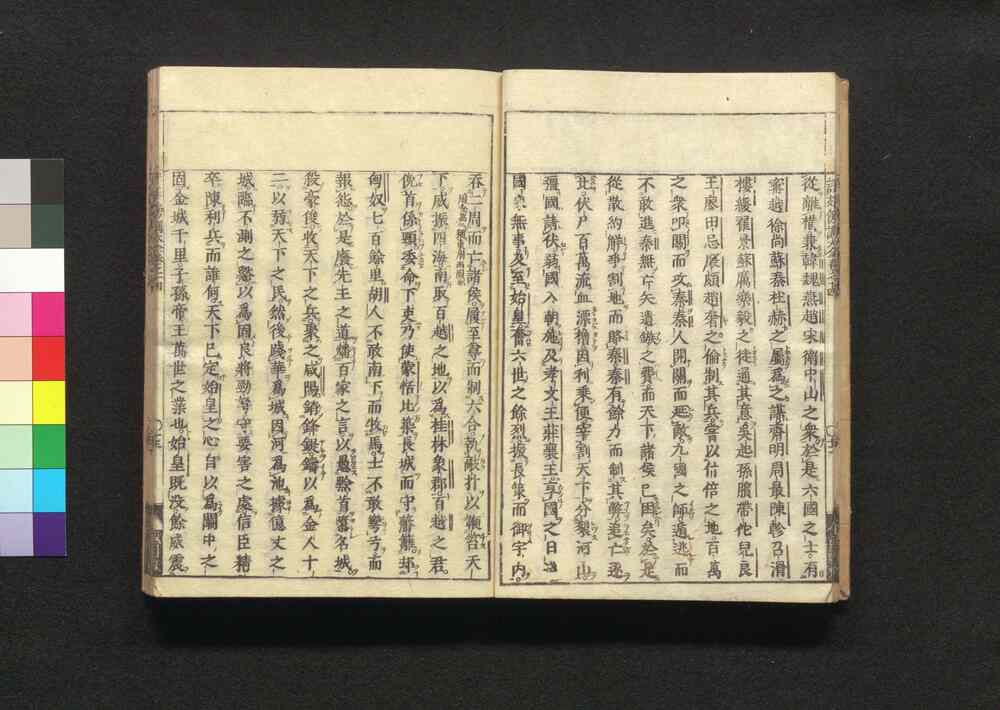 從離橫兼韓魏燕趙宋衛中山之衆於是六國之士有
甯越徐尚蘇秦杜赫之屬爲之謀齊明周最陳軫召滑
樓緩翟景蘇厲樂毅之徒通其意吳起孫臏帶佗兒良
王廖田忌廉頗趙奢之倫制其兵嘗以什倍之地百萬
之衆叩關而攻秦秦人開關而延敵九國之師遁逃而
不敢進秦無亡矢遺鏃之費而天下諸侯已困矣於是
從散約解爭割地而賂秦秦有餘力而制其弊追亡逐
北伏尸百萬流血漂櫓因利乘便宰割天下分裂河山
彊國請伏弱國入朝施及孝文王莊襄王享國之日淺
國家無事及至始皇奮六世之餘烈振長策而御宇內
吞二周而亡諸侯履至尊而制六合執敲扑以鞭笞天
下威振四海南取百越之地以爲桂林象郡百越之君
俛首係頸委命下吏乃使蒙恬北築長城而守藩籬却
匈奴七百餘里胡人不敢南下而牧馬士不敢彎弓而
報怨於是廢先王之道燔百家之言以愚黔首墮名城
殺豪俊收天下之兵聚之咸陽銷鋒鍉鑄以爲金人十
二以弱天下之民然後踐華爲城因河爲池據億丈之
城臨不測之谿以爲固良將勁弩守要害之處信臣精
卒陳利兵而誰何天下已定始皇之心自以爲關中之
固金城千里子孫帝王萬世之業也始皇既沒餘威震